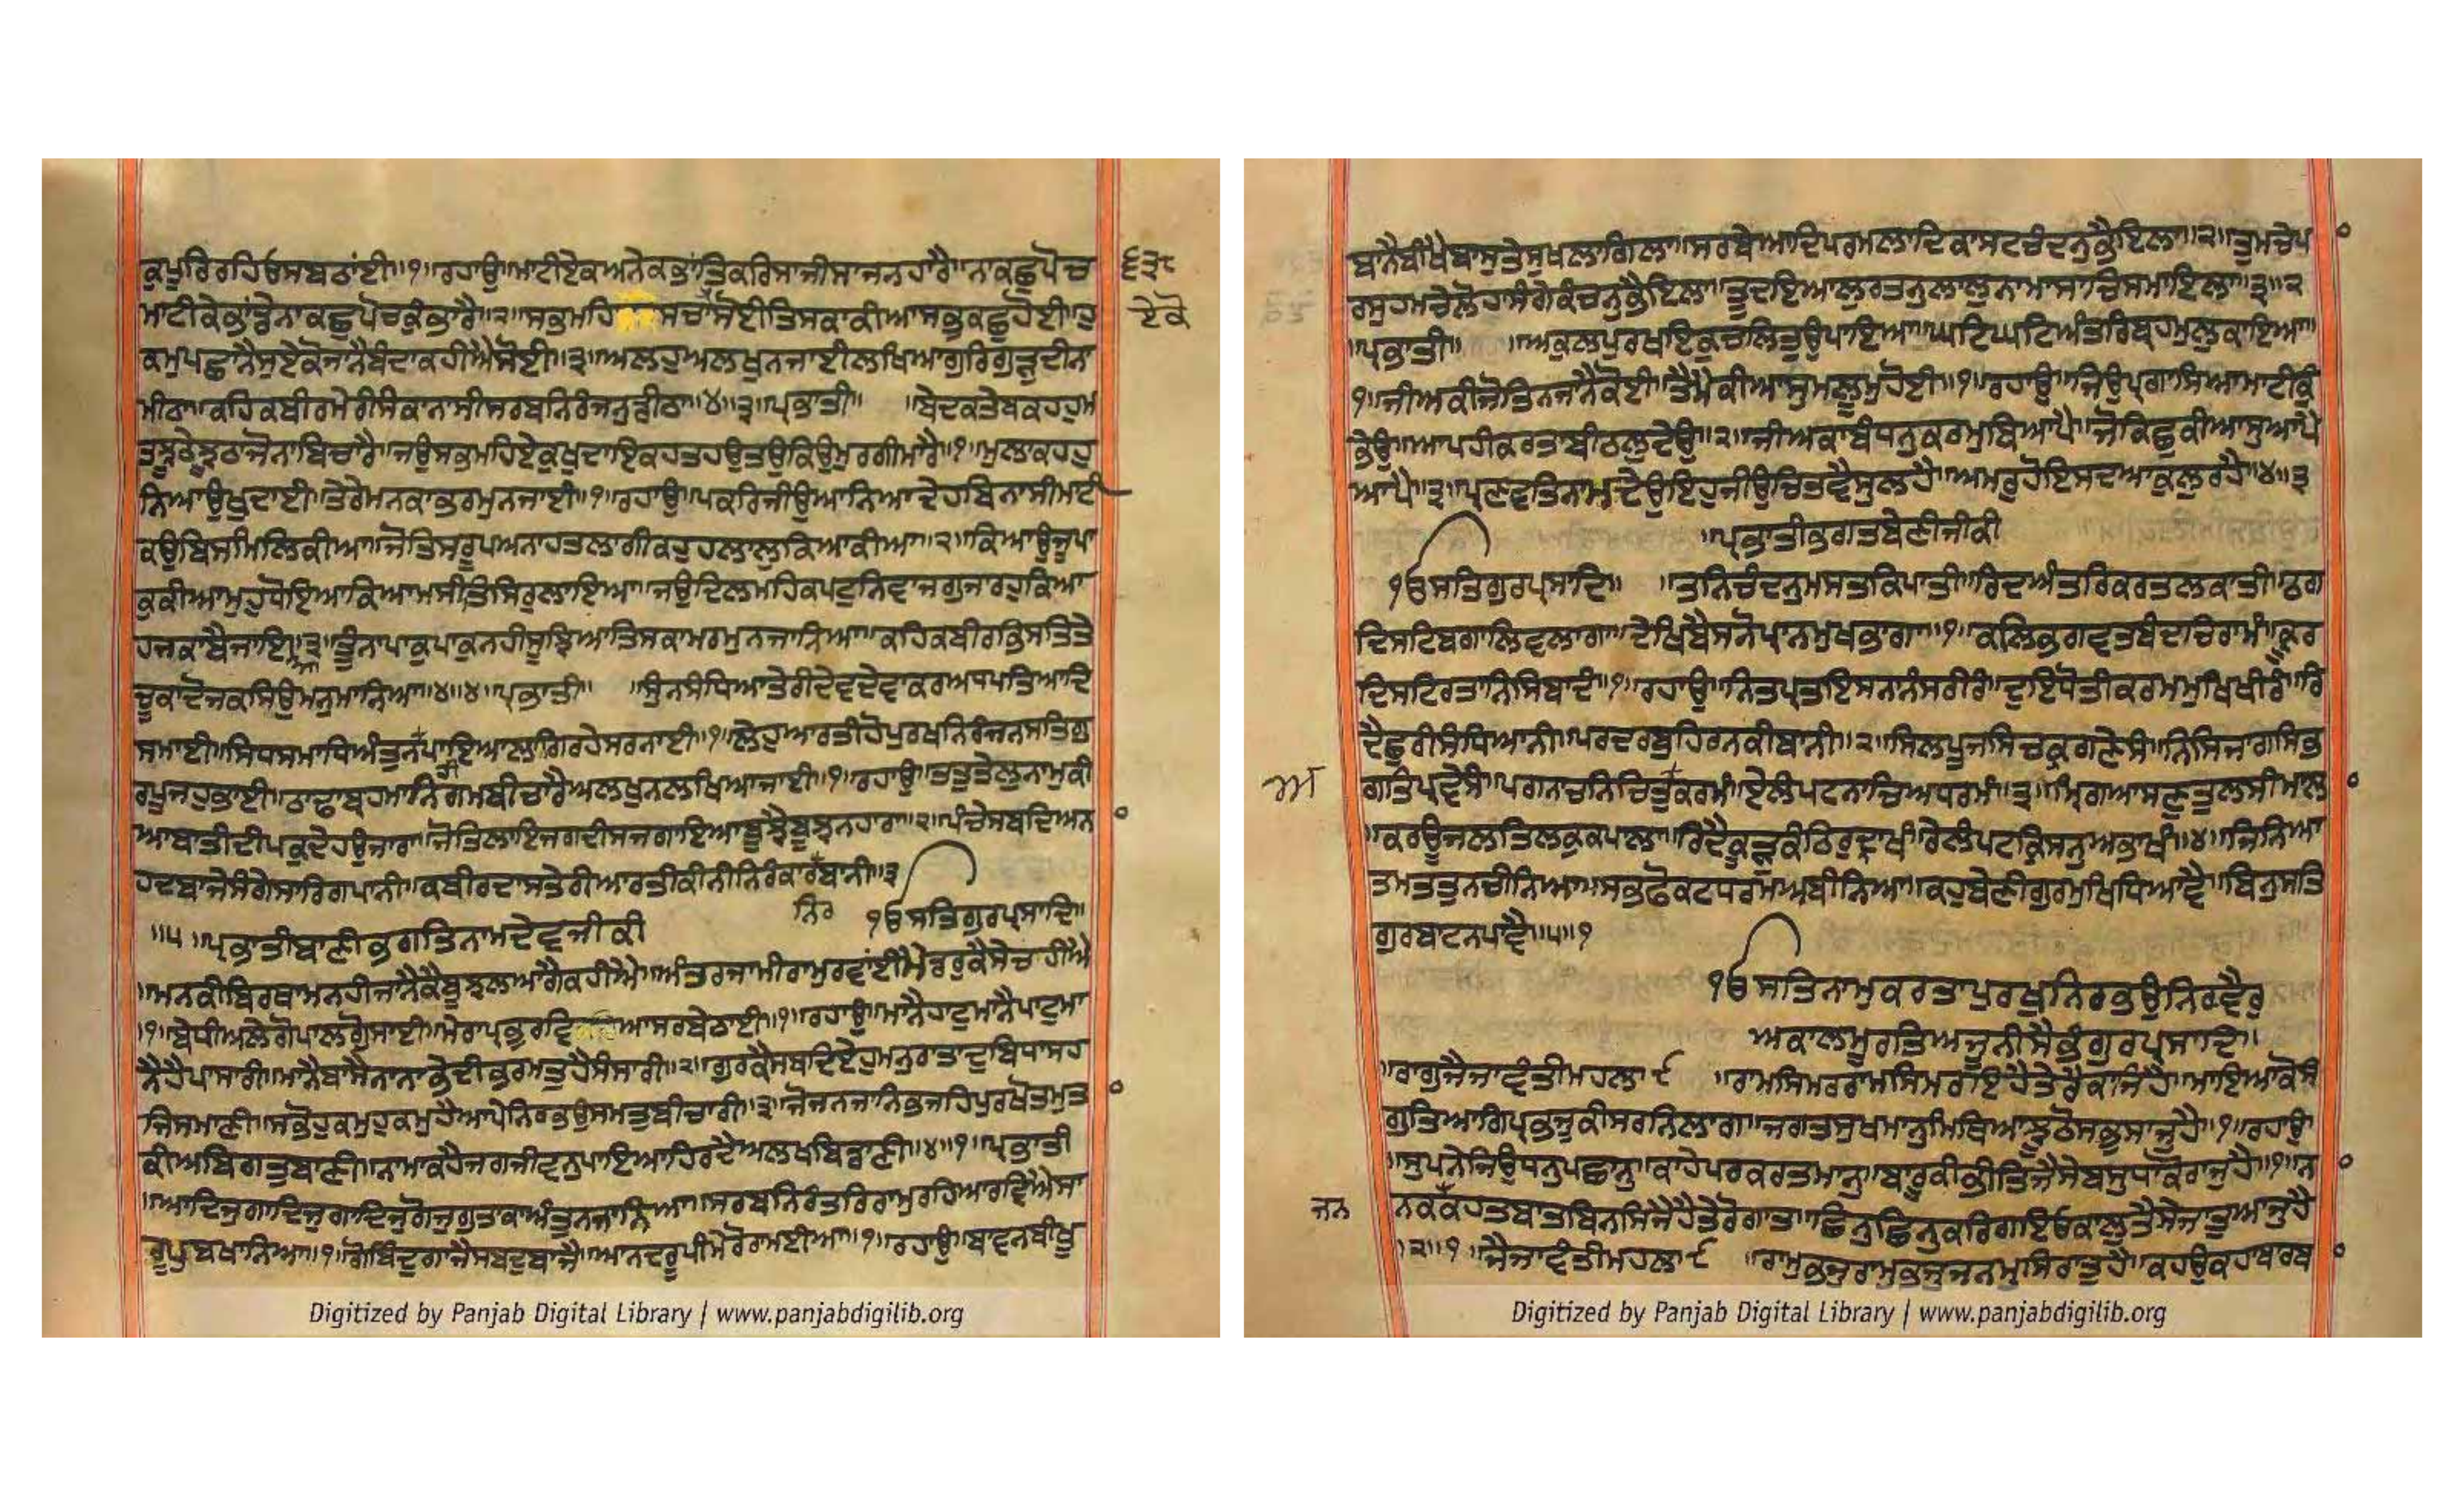 ਕੁਪੂਰਿਰਹਿਓਸਬਠਾਂਈ॥੧॥ਰਹਾਉ॥ਮਾਟੀਏਕਅਨੇਕਭਾਂਤਿਕਰਿਸਾਜੀਸਾਜਨਹਾਰੈ॥ਨਾਕਛੁਪੋਚ
੬੩੮
ਮਾਟੀਕੇਭਾਂਡੇਨਾਕਛੁਪੋਚਕੁੰਭਾਰੈ॥੨॥ਸਭਮਹਿ ਸਚਾਸੋਈਤਿਸਕਾਕੀਆਸਭੁਕਛੁਹੋਈ॥ਹੁ
ਏਕੋ
ਕਮੁਪਛਾਨੈਸੁਏਕੋਜਾਨੈਬੰਦਾਕਹੀਐਸੋਈ॥੩॥ਅਲਹੁਅਲਖੁਨਜਾਈਲਖਿਆਗੁਰਿਗੁੜੁਦੀਨਾ
ਮੀਠਾ॥ਕਹਿਕਬੀਰਮੇਰੀਸੰਕਾਨਾਸੀਸਰਬਨਿਰੰਜਨੁਡੀਠਾ॥੪॥੩॥ਪ੍ਰਭਾਤੀ॥ ॥ਬੇਦਕਤੇਬਕਹਹੁਮ
ਤਝੂਠੇਝੂਠਾਜੋਨਾਬਿਚਾਰੈ॥ਜਉਸਭਮਹਿਏਕੁਖੁਦਾਇਕਹਤਹਉਤਉਕਿਉਮੁਰਗੀਮਾਰੈ॥੧॥ਮੁਲਾਕਹਹੁ
ਨਿਆਉਖੁਦਾਈ॥ਤੇਰੇਮਨਕਾਭਰਮੁਨਜਾਈ॥੧॥ਰਹਾਉ॥ਪਕਰਿਜੀਉਆਨਿਆਦੇਹਬਿਨਾਸੀਮਾਟੀ
ਕਉਬਿਸਮਿਲਿਕੀਆ॥ਜੋਤਿਸਰੂਪਅਨਾਹਤਲਾਗੀਕਹੁਹਲਾਲੁਕਿਆਕੀਆ॥੨॥ਕਿਆਉਜੂਪਾ
ਕੁਕੀਆਮੁਹੁਧੋਇਆਕਿਆਮਸੀਤਿਸਿਰੁਲਾਇਆ॥ਜਉਦਿਲਮਹਿਕਪਟੁਨਿਵਾਜਗੁਜਾਰਹੁਕਿਆ
ਹਜਕਾਬੈਜਾਇਆ॥੩॥ਤੂੰਨਾਪਾਕੁਪਾਕੁਨਹੀਸੂਝਿਆਤਿਸਕਾਮਰਮੁਨਜਾਨਿਆ॥ਕਹਿਕਬੀਰਭਿਸਤਿਤੇ
ਚੂਕਾਦੋਜਕਸਿਉਮਨੁਮਾਨਿਆ॥੪॥੪॥ਪ੍ਰਭਾਤੀ॥ ॥ਸੁੰਨਸੰਧਿਆਤੇਰੀਦੇਵਦੇਵਾਕਰਅਧਪਤਿਆਦਿ
ਸਮਾਈ॥ਸਿਧਸਮਾਧਿਅੰਤੁਨਪਾਇਆਲਾਗਿਰਹੇਸਰਨਾਈ॥੧॥ਲੇਹੁਆਰਤੀਹੋਪੁਰਖਨਿਰੰਜਨਸਤਿਗੁ
ਰਪੂਜਹੁਭਾਈ॥ਠਾਢਾਬ੍ਰਹਮਾਨਿਗਮਬੀਚਾਰੈਅਲਖੁਨਲਖਿਆਜਾਈ॥੧॥ਰਹਾਉ॥ਤਤੁਤੇਲੁਨਾਮੁਕੀ
ਆਬਾਤੀਦੀਪਕੁਦੇਹਉਜਾਰਾ॥ਜੋਤਿਲਾਇਜਗਦੀਸਜਗਾਇਆਬੂਝੈਬੂਝਨਹਾਰਾ॥੨॥ਪੰਚੇਸਬਦਿਅਨ
ਹਦਬਾਜੇਸੰਗੇਸਾਰਿਗਪਾਨੀ॥ਕਬੀਰਦਾਸਤੇਰੀਆਰਤੀਕੀਨੀਨਿਰੰਕਾਰਬਾਨੀ॥੩
ਨਿਰ ੴਸਤਿਗੁਰਪ੍ਰਸਾਦਿ॥
॥੫॥ਪ੍ਰਭਾਤੀਬਾਣੀਭਗਤਿਨਾਮਦੇਵਜੀਕੀ
॥ਮਨਕੀਬਿਰਥਾਮਨਹੀਜਾਨੈਕੈਬੂਝਲਆਗੈਕਹੀਐ॥ਅੰਤਰਜਾਮੀਰਾਮੁਰਵਾਂਈਮੈਡਰੁਕੈਸੇਚਾਹੀਐ
॥੧॥ਬੇਧੀਅਲੇਗੋਪਾਲਗੋੁਸਾਈ॥ਮੇਰਾਪ੍ਰਭੁਰਵਿਆਸਰਬੇਠਾਈ॥੧॥ਰਹਾਉ॥ਮਾਨੈਹਾਟੁਮਾਨੈਪਾਟੁਮਾ
ਨੈਹੈਪਾਸਾਰੀ॥ਮਾਨੈਬਾਸੈਨਾਨਾਭੇਦੀਭਰਮਤੁਹੈਸੰਸਾਰੀ॥੨॥ਗੁਰਕੈਸਬਦਿਏਹੁਮਨੁਰਾਤਾਦੁਬਿਧਾਸਹ
ਜਿਸਮਾਣੀ॥ਸਭੋਹੁਕਮੁਹੁਕਮੁਹੈਆਪੇਨਿਰਭਉਸਮਤੁਬੀਚਾਰੀ॥੩॥ਜੋਜਨਜਾਨਿਭਜਹਿਪੁਰਖੋਤਮੁਤ
ਕੀਅਬਿਗਤੁਬਾਣੀ॥ਨਾਮਾਕਹੈਜਗਜੀਵਨੁਪਾਇਆਹਿਰਦੈਅਲਖਬਿਡਾਣੀ॥੪॥੧॥ਪ੍ਰਭਾਤੀ
॥ਆਦਿਜੁਗਾਦਿਜੁਗਾਦਿਜੁਗੋਜੁਗੁਤਾਕਾਅੰਤੁਨਜਾਨਿਆ॥ਸਰਬਨਿਰੰਤਰਿਰਾਮੁਰਹਿਆਰਵਿਐਸਾ
ਰੂਪੁਬਖਾਨਿਆ॥੧॥ਗੋਬਿੰਦੁਗਾਜੈਸਬਦੁਬਾਜੈ॥ਆਨਦਰੂਪੀਮੇਰੋਰਾਮਈਆ॥੧॥ਰਹਾਉ॥ਬਾਵਨਬੀਖੂ
Digitized by Panjab Digital Library | www.panjabdigilib.org
ਬਾਨੈਬੀਖੇਬਾਸੁਤੇਸੁਖਲਾਗਿਲਾ॥ਸਰਬੇਆਦਿਪਰਮਲਾਦਿਕਾਸਟਚੰਦਨੁਭੈਇਲਾ॥੨॥ਤੁਮਚੇਪ
ਰਸੁਹਮਚੇਲੋਹਾਸੰਗੇਕੰਚਨੁਭੈਇਲਾ॥ਤੂਦਇਆਲੁਰਤਨੁਲਾਲੁਨਾਮਾਸਾਚਿਸਮਾਇਲਾ॥੩॥੨
॥ਪ੍ਰਭਾਤੀ॥ ॥ਅਕੁਲਪੁਰਖਇਕੁਚਲਿਤੁਉਪਾਇਆ॥ਘਟਿਘਟਿਅੰਤਰਿਬ੍ਰਹਮੁਲੁਕਾਇਆ॥
੧॥ਜੀਅਕੀਜੋਤਿਨਜਾਨੈਕੋਈ॥ਤੈਮੈਕੀਆਸੁਮਾਲੂਮੁਹੋਈ॥੧॥ਰਹਾਉ॥ਜਿਉਪ੍ਰਗਾਸਿਆਮਾਟੀਕੁੰ
ਭੇਉ॥ਆਪਹੀਕਰਤਾਬੀਠਲੁਦੇਉ॥੨॥ਜੀਅਕਾਬੰਧਨੁਕਰਮੁਬਿਆਪੈ॥ਜੋਕਿਛੁਕੀਆਸੁਆਪੈ
ਆਪੈ॥੩॥ਪ੍ਰਣਵਤਿਨਾਮਦੇਉਇਹੁਜੀਉਚਿਤਵੈਸੁਲਹੈ॥ਅਮਰੁਹੋਇਸਦਆਕੁਲਰਹੈ॥੪॥੩
॥ਪ੍ਰਭਾਤੀਭਗਤਬੇਣੀਜੀਕੀ
ੴਸਤਿਗੁਰਪ੍ਰਸਾਦਿ॥ ॥ਤਨਿਚੰਦਨੁਮਸਤਕਿਪਾਤੀ॥ਰਿਦਅੰਤਰਿਕਰਤਲਕਾਤੀ॥ਠਗ
ਦਿਸਟਿਬਗਾਲਿਵਲਾਗਾ॥ਦੇਖਿਬੈਸਨੋਪ੍ਰਾਨਮੁਖਭਾਗਾ॥੧॥ਕਲਿਭਗਵਤਬੰਦਚਿਰਾਮੰ॥ਕ੍ਰੂਰ
ਦਿਸਟਿਰਤਾਨਿਸਿਬਾਦੰ॥੧॥ਰਹਾਉ॥ਨਿਤਪ੍ਰਤਇਸਨਨੰਸਰੀਰੰ॥ਦੁਇਧੋਤੀਕਰਮਮੁਖਿਖੀਰੰ॥ਰਿ
ਦੈਛੁਰੀਸੰਧਿਆਨੀ॥ਪਰਦਰਬੁਹਿਰਨਕੀਬਾਨੀ॥੨॥ਸਿਲਪੂਜਸਿਚਕ੍ਰਗਣੇਸੰ॥ਨਿਸਿਜਾਗਸਿਭ
ਗਤਿਪ੍ਰਵੇਸੰ॥ਪਗਨਾਚਨਿਚਿਤੁਕਰਮੰ॥ਏਲੰਪਟਨਾਚਿਅਧਰਮੰ॥੩॥ਮ੍ਰਿਗਆਸਣੁਤੁਲਸੀਮਾਲਾ
॥ਕਰਊਜਲਤਿਲਕੁਕਪਾਲਾ॥ਰਿਦੈਕੂੜੁਕੰਠਿਰੁਦ੍ਰਾਖੰ॥ਰੇਲੰਪਟਕ੍ਰਿਸਨੁਅਭਾਖੰ॥੪॥ਜਿਨਿਆ
ਤਮਤਤੁਨਚੀਨਿਆ॥ਸਭਫੋਕਟਧਰਮਅਬੀਨਿਆ॥ਕਹੁਬੇਣੀਗੁਰਮੁਖਿਧਿਆਵੈ॥ਬਿਨੁਸਤਿ
ਗੁਰਬਾਟਨਪਾਵੈ॥੫॥੧
ੴਸਤਿਨਾਮੁਕਰਤਾਪੁਰਖੁਨਿਰਭਉਨਿਰਵੈਰੁ
ਅਕਾਲਮੂਰਤਿਅਜੂਨੀਸੈਭੰਗੁਰਪ੍ਰਸਾਦਿ॥
॥ਰਾਗੁਜੈਜਾਵੰਤੀਮਹਲਾ੯ ॥ਰਾਮਸਿਮਰਰਾਮਸਿਮਰਇਹੈਤੇਰੈਕਾਜਿਹੈ॥ਮਾਇਆਕੋਸੰ
ਗੁਤਿਆਗਿਪ੍ਰਭਜੂਕੀਸਰਨਿਲਾਗ॥ਜਗਤਸੁਖਮਾਨੁਮਿਥਿਆਝੂਠੋਸਭਸਾਜੁਹੈ॥੧॥ਰਹਾਉ
॥ਸੁਪਨੇਜਿਉਧਨੁਪਛਾਨੁ॥ਕਾਹੇਪਰਕਰਤਮਾਨੁ॥ਬਾਰੂਕੀਭੀਤਿਜੈਸੇਬਸੁਧਾਕੋਰਾਜੁਹੈ॥੧॥ਨਾ
ਜਨ ਨਕਕਹਤਬਾਤਬਿਨਸਿਜੈਹੈਤੇਰੋਗਾਤ॥ਛਿਨੁਛਿਨੁਕਰਿਗਇਓਕਾਲੁਤੈਸੇਜਾਤੁਆਜੁਹੈ
॥੨॥੧॥ਜੈਜਾਵੰਤੀਮਹਲਾ੯ ॥ਰਾਮੁਭਜੁਰਾਮੁਭਜੁਜਨਮੁਸਿਰਾਤੁਹੈ॥ਕਹਉਕਹਾਬਾਰਬਾ
Digitized by Panjab Digital Library | www.panjabdigilib.org